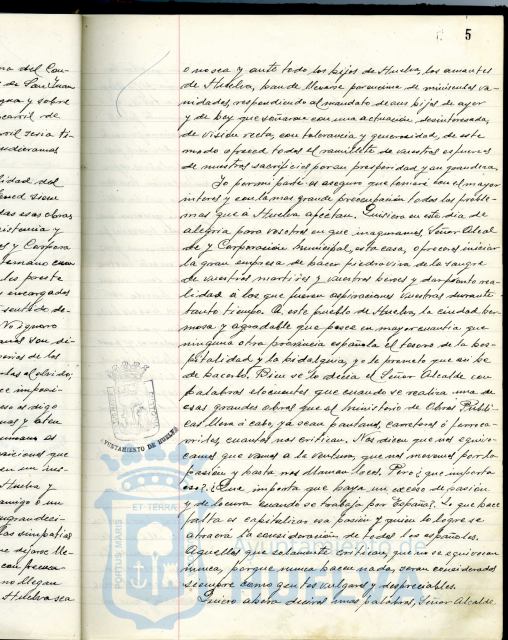 5
o no sea y ante todo los hijos de Huelva, los amantes
de Huelva, han de llevarse por encima de minúsculas va-
nidades, respondiendo al mandato de sus hijos de ayer
y de hoy que soñaron con una actuación desinteresada,
de visión recta, con tolerancia y generosidad, de este
modo ofreced todos el ramillete de vuestros esfuerzos
de vuestros sacrificios por su prosperidad y su grandeza.
Yo por mi parte os aseguro que tomaré con el mayor
interés y con la mas grande preocupación todos los proble-
mas que a Huelva afectan. Quisiera en este día de
alegría para vosotros en que inauguramos Señor Alcal
de y Corporación Municipal, esta casa, ofreceros iniciar
la gran empresa de hacer piedra viva de la sangre
de vuestros martires y vuestros heroes y dar pronto rea-
lidad a las que fueron aspiraciones vuestras durante
tanto tiempo. A este pueblo de Huelva, la ciudad her-
mosa y agradable que posee en mayor cuantía que
ninguna otra provincia española el tesoro de la hos-
pitalidad y la hidalguia, yo le prometo que así he
de hacerlo. Bien se lo decía el Señor Alcalde con
palabras elocuentes que cuando se realiza una de
esas grandes obras que el Ministerio de Obras Públi-
cas lleva a cabo, ya sean pantanos, carreteras ó ferroca-
rriles, cuantos nos critican. Nos dicen que nos equivo-
camos que vamos a la ventura, que nos movemos por la
pasión y hasta nos llaman locos. Pero ¿que importa
eso? ¿Que importa que haya un exceso de pasión
y de locura cuando se trabaja por España? Lo que hace
falta es capitalizar esa pasión y quien lo logre se
atraera la consideración de todos los españoles.
Aquellos que solamente critican y que no se equivocan
nunca, porque nunca hacen nada, seran considerados
siempre como gentes vulgares y despreciables.
Quiero ahora deciros unas palabras, Señor Alcalde
de San Juan
y sobre
carril de
lidad del
das esas obras
les preste
encargados
Huelva y
amigo o un
no llegan
Huelva sea
AYUNTAMIENTO DE HUELVA
PORTUS MARIS
ET TERRAE
Ayuntamiento de
HUELVA